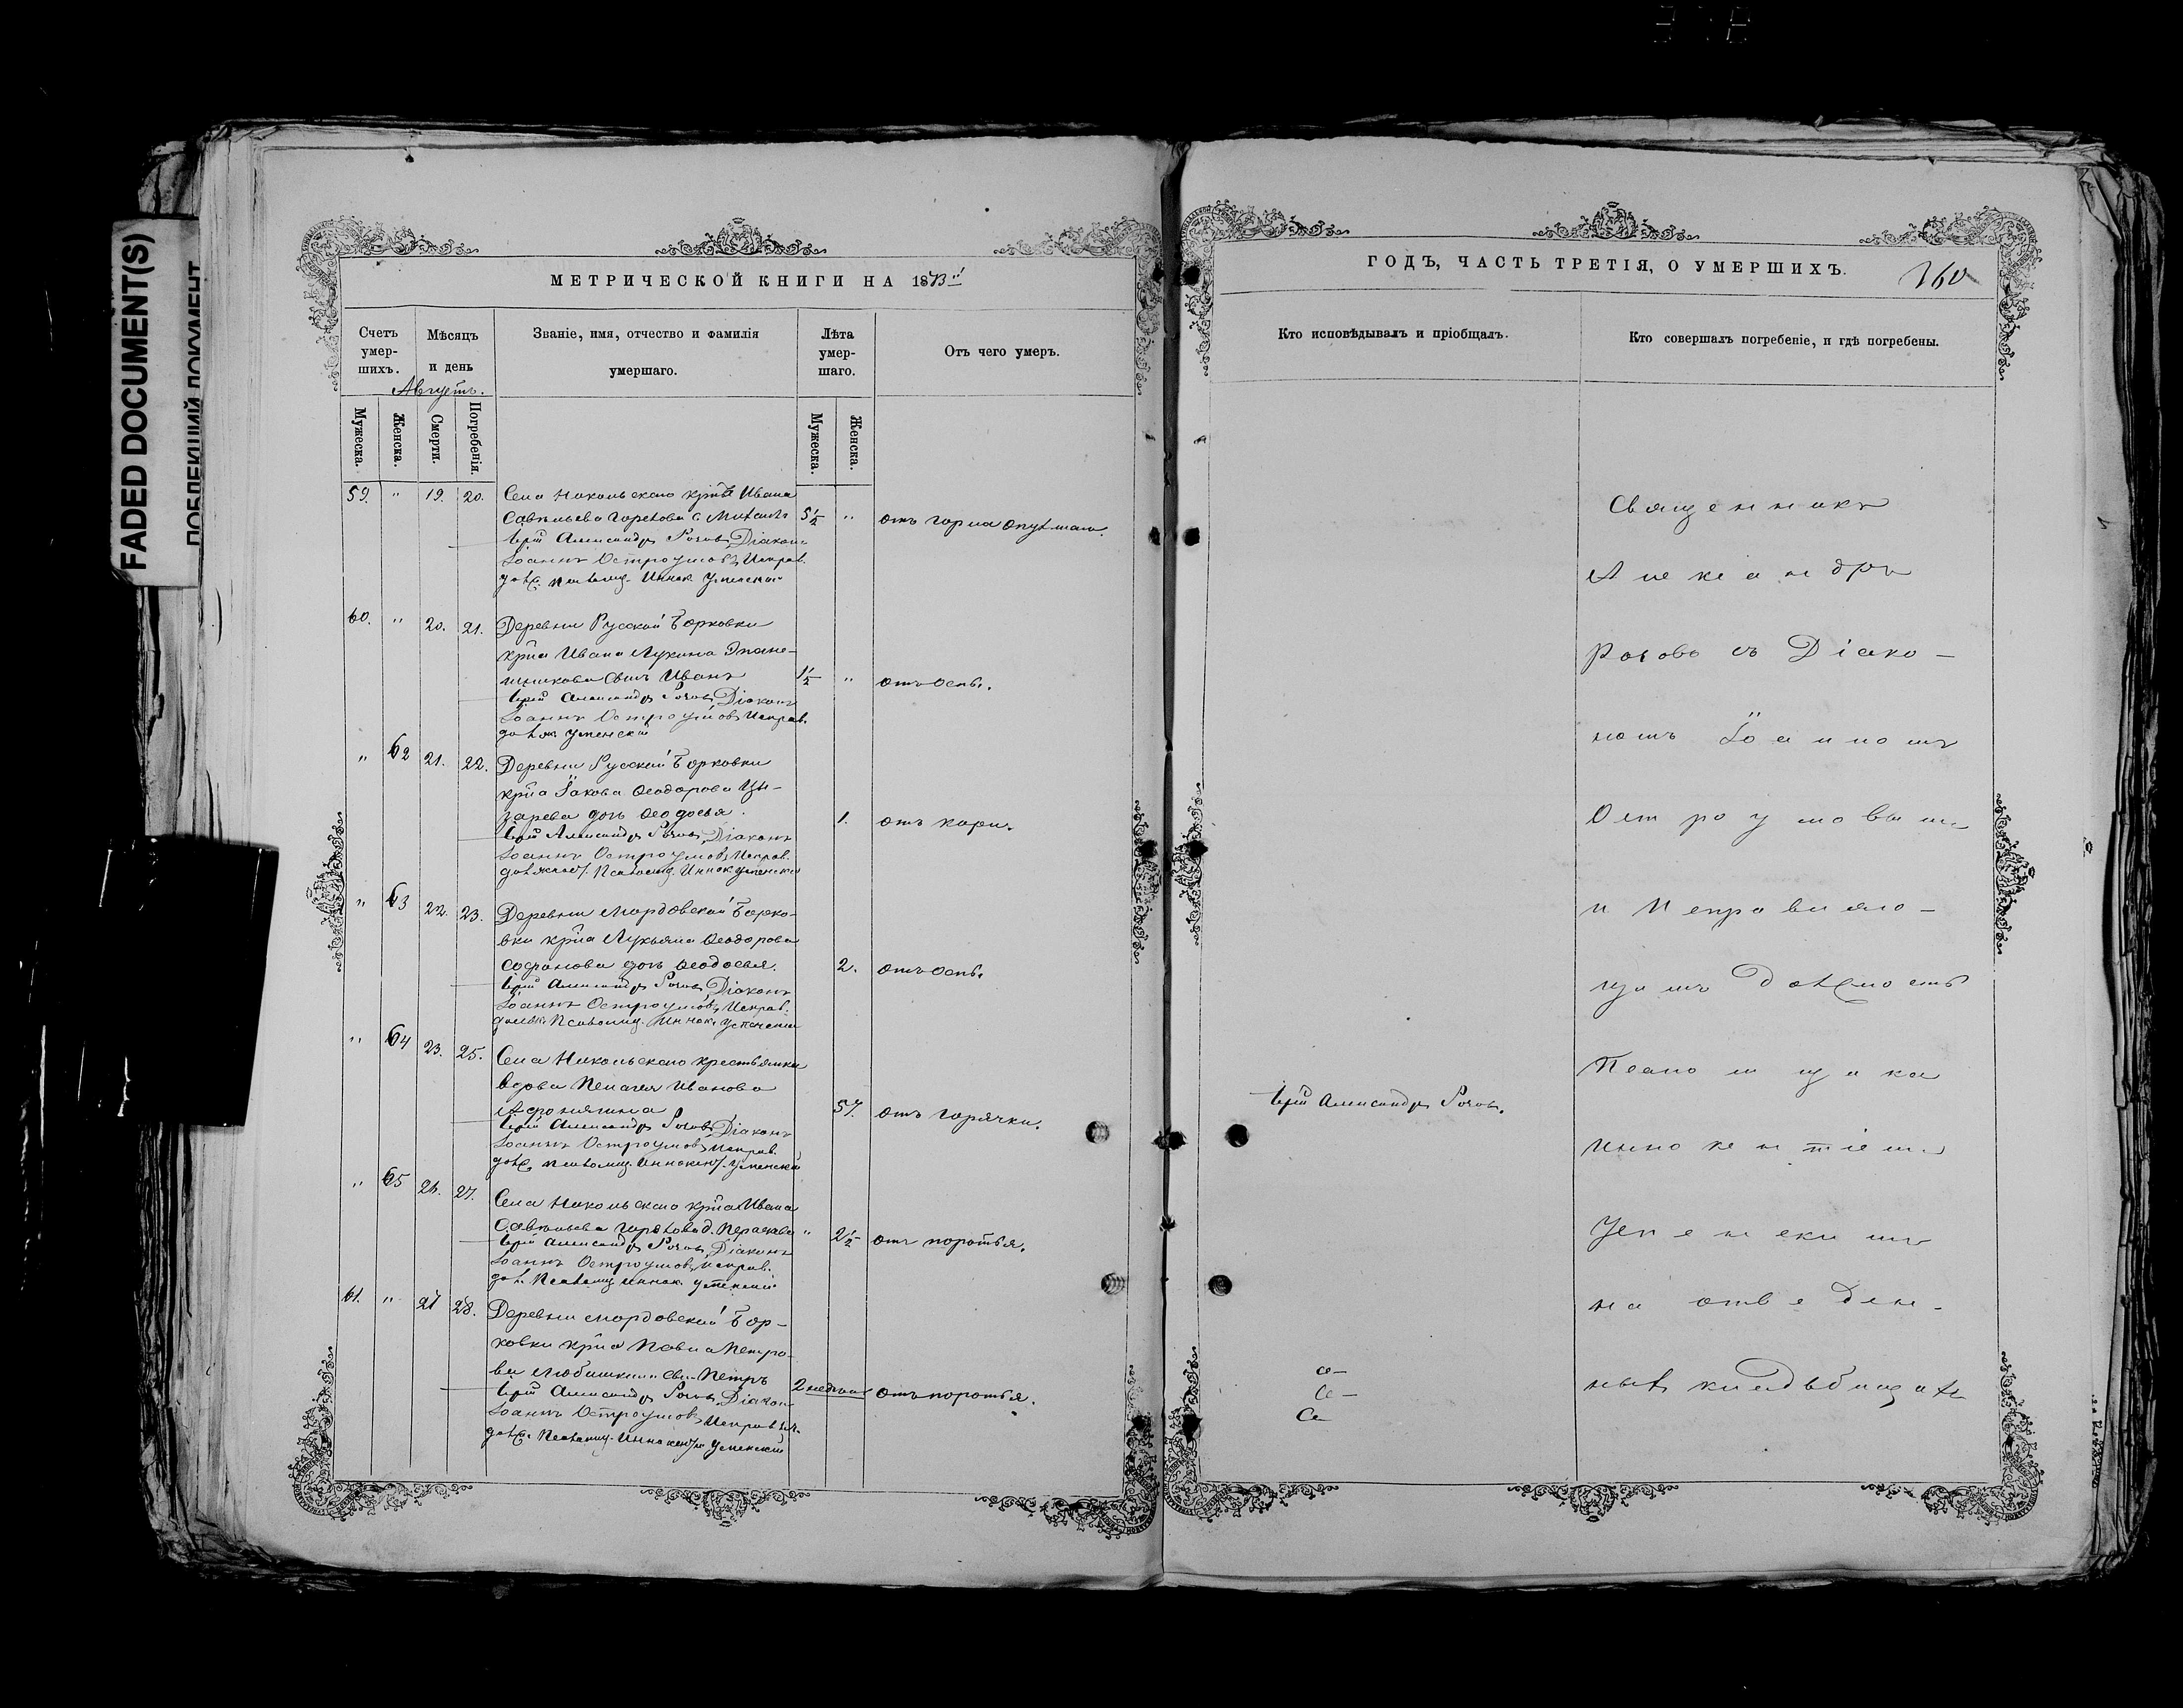 FADED DOCUMENT(S)
ПОБЛЕКШИЙ ДОКУМЕНТ
МЕТРИЧЕСКОЙ КНИГИ НА 1873й
Счетъ умер-шихъ.
Мѣсяцъ и день
Августъ.
Званіе, имя, отчество и фамилія умершаго.
Лѣта умер-шаго.
Отъ чего умеръ.
Мужеска.
Женска.
Смерти.
Погребенія.
Мужеска.
Женска.
59. " 19. 20. Села Никольскаго крнѣ Ивана
Савельева Горехова с. Михаилъ 5½ " отъ горла
Іерей Александръ Роговъ, Діаконъ
Іоаннъ Остроумовъ, Исправ.
долж. псаломщ. Иннок. Успенскій
60. " 20. 21. Деревни Русской Борковки
крна Ивана Лукина
сынъ Иванъ 1½ " отъ оспы.
Іерей Александръ Роговъ, Діаконъ
Іоаннъ Остроумовъ, Исправ.
долж Успенскій
" 62 21. 22. Деревни Русской Борковки
крна Іакова Ѳеодорова Цы-
зарева дочь Ѳеодосья. 1. отъ кори.
Іерей Александръ Роговъ, Діаконъ
Іоаннъ Остроумовъ, Исправ.
должност. Псаломщ. Иннок Успенскій
" 63 22. 23. Деревни Мордовской Борко-
вки крна Лукьяна Ѳеодорова
Софронова дочь Ѳеодосья. 2. отъ оспы.
Іерей Александръ Роговъ, Діаконъ
Іоаннъ Остроумовъ, Исправ.
должн. Псаломщ. Иннок. Успенскій
" 64 23. 25. Села Никольскаго крестьянка
вдова Пелагея Иванова
Афонягина 57. отъ горячки.
Іерей Александръ Роговъ, Діаконъ
Іоаннъ Остроумовъ, Исправ.
долж. псаломщ. Иннокент. Успенскій
" 65 26. 27. Села Никольскаго крна Ивана
Савельева Горехова д. Параскева " 2½ отъ поротья.
Іерей Александръ Роговъ, Діаконъ
Іоаннъ Остроумовъ, Исправ.
дол. Псаломщ Иннок. Успенскій
61. " 27 28. Деревни Мордовской Бор-
ковки крна Павла Петро-
ва Любишкина сынъ Петръ 2 недѣли отъ поротья.
Іерей Александръ Роговъ, Діаконъ
Іоаннъ Остроумовъ, Исправл.
долж. Псаломщ. Иннокентій Успенскій
ГОДЪ, ЧАСТЬ ТРЕТІЯ, О УМЕРШИХЪ.
360
Кто исповѣдывалъ и пріобщалъ.
Кто совершалъ погребеніе, и гдѣ погребены.
Священникъ
Александръ
Роговъ съ Діако-
номъ Іоанномъ
Остроумовымъ
и Исправляю-
щимъ должность
Псаломщика
Іерей Александръ Роговъ.
Иннокентіемъ
Успенскимъ
на отведен-
номъ кладбищѣ